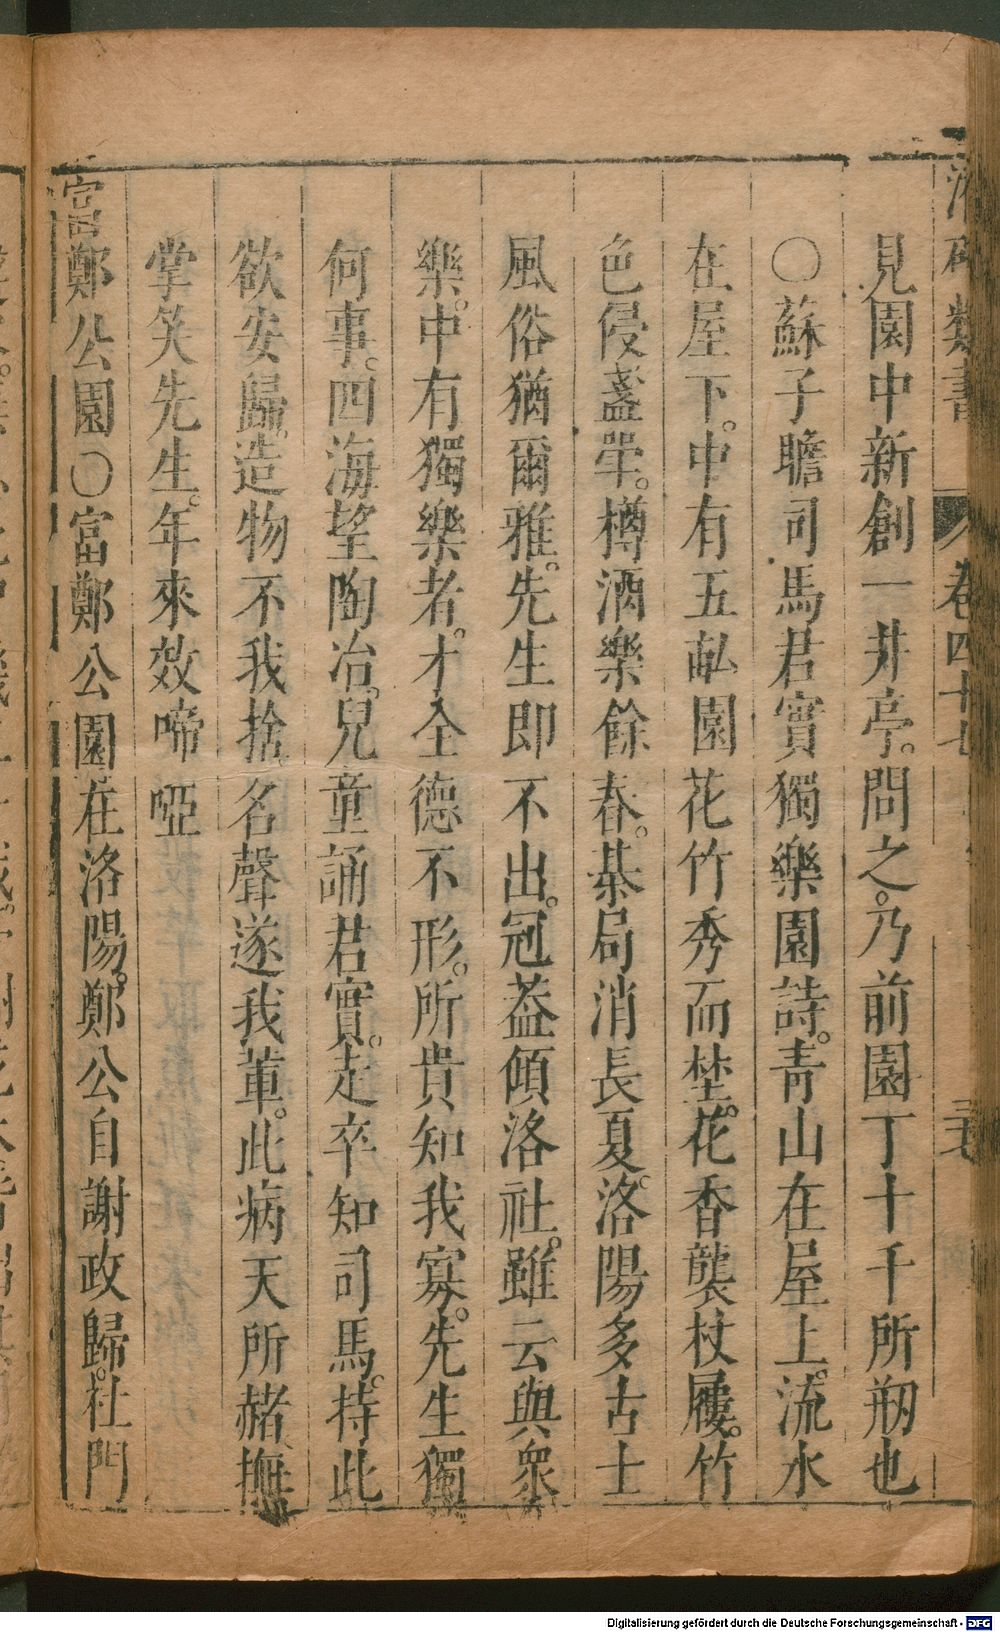 類書
卷四十七
見園中新創一井亭。問之。乃前園丁十千所剏也
○蘇子瞻司馬君實獨樂園詩。青山在屋上。流水
在屋下。中有五畝園花竹秀而埜。花香襲杖屨。竹
色侵盞斝。樽酒樂餘春。棊局消長夏。洛陽多古士
風俗猶爾雅。先生卽不出。冠蓋傾洛社。雖云與衆
樂。中有獨樂者。才全德不形。所貴知我寡。先生獨
何事。四海望陶冶。兒童誦君實。走卒知司馬。持此
欲安歸。造物不我捨。名聲逐我輩。此病天所赭。撫
掌笑先生。年來效啼啞
富鄭公園○富鄭公園在洛陽。鄭公自謝政歸。社門
Digitalisierung gefördert durch die Deutsche Forschungsgemeinschaft - DFG